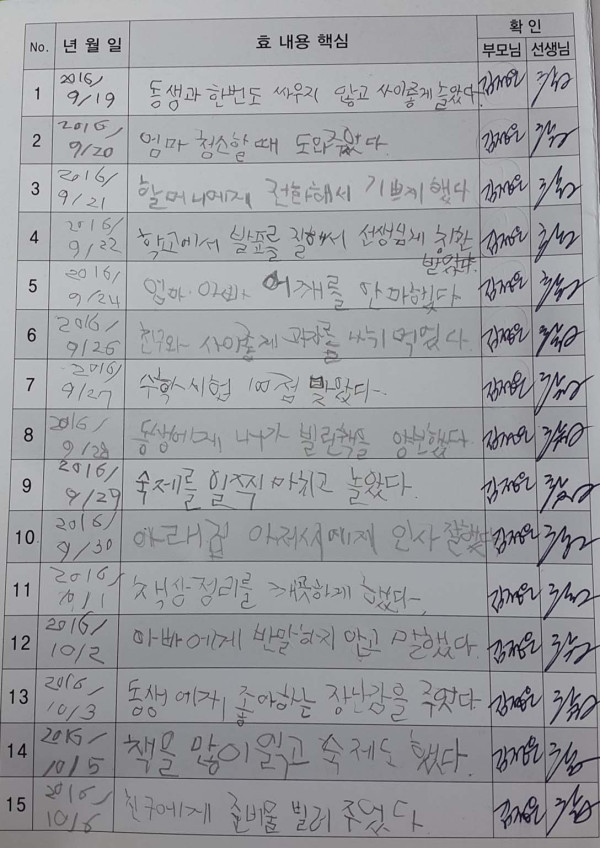 No. 년 월 일 효 내용 핵심 확 인
부모님 선생님
1 2016/ 9/19 동생과 한번도 싸우지 않고 사이좋게 놀았다.
2 2016/ 9/20 엄마 청소할때 도와주었다.
3 2016/ 9/21 할머니에게 전화해서 기쁘게 했다
4 2016/ 9/22 학교에서 발표를 잘해서 선생님께 칭찬
받았다.
5 2016/ 9/24 엄마·아빠 어깨를 안마했다
6 2016/ 9/26 친구와 사이좋게 과자를 나눠 먹었다.
7 2016/ 9/27 수학시험 100점 맞았다.
8 2016/ 9/28 동생에게 내가 빌린책을 양보했다
9 2016/ 9/29 숙제를 일찍 마치고 놀았다.
10 2016/ 9/30 아래집 아저씨에게 인사 잘했다
11 2016/ 책상정리를 깨끗하게 했다.
12 2016/ 10/2 아빠에게 반말하지 안고 말했다.
13 2016/ 10/3 동생 에게 좋아하는 장난감을 주었다
14 2016/ 10/5 책을 많이 읽고 숙제도 했다.
15 2016/ 10/6 친구에게 준비물 빌려 주었다